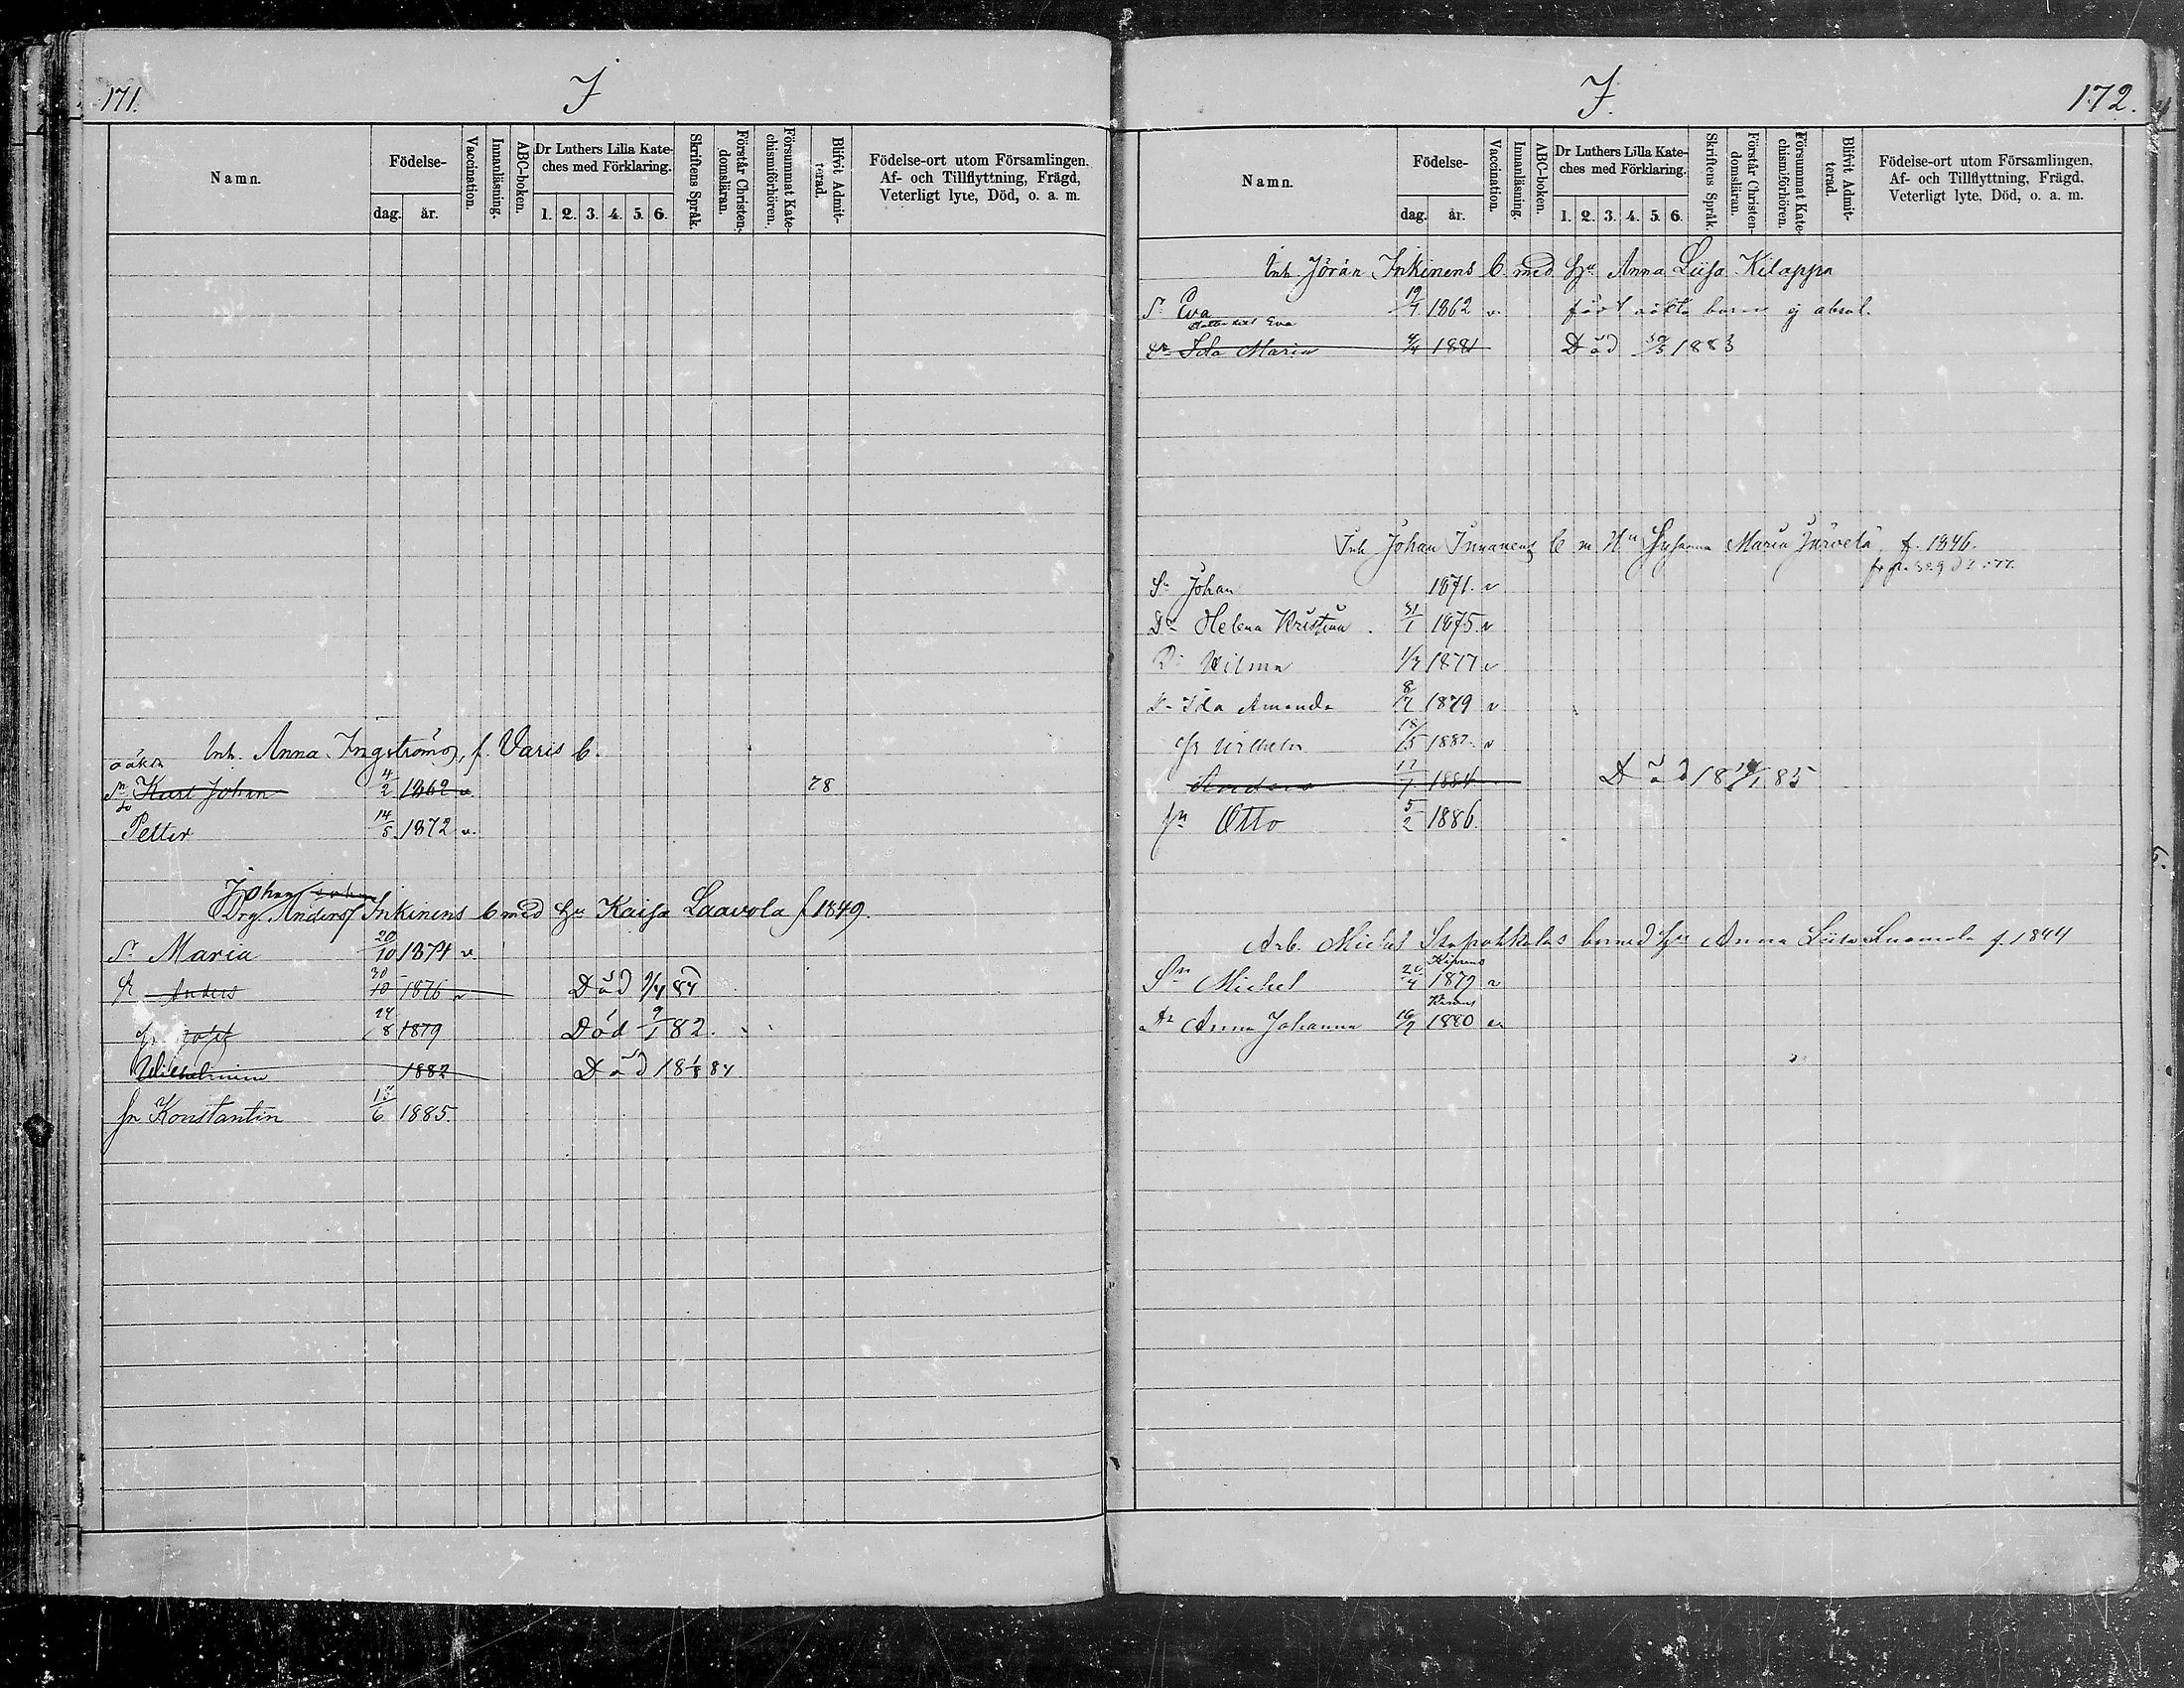 171.
I
Namn.
Födelse-
dag.
år.
Vaccination.
Innanläsning.
ABC-boken.
Dr Luthers Lilla Kate-
ches med Förklaring.
1. 2. 3. 4. 5. 6.
Skriftens Språk.
Förstår Christen-
domsläran.
Försummat Kate-
chismiförhören.
Blifvit Admit-
terad.
Födelse-ort utom Församlingen,
Af- och Tillflyttning, Frägd,
Veterligt lyte, Död, o. a. m.
Inh. Anna Ingströms, f. Varis b.
oäkta
Sn Karl Johan 4/2 1862 v. 78
Petter 14/8 1872 v.
Johan
Drg. Anders Inkinens b med Hu Kaisa Laavola f 1849.
Maria 20/10 1874 v.
Anders 30/10 1876 v Död 9/4 84
24/8 1879 Död 9/1 82.
Wilhelmina 1882 Död 18 1/8 84
Sn Konstantin 15/6 1885.
I.
172.
Namn.
Födelse-
dag.
år.
Vaccination.
Innanläsning.
ABC-boken.
Dr Luthers Lilla Kate-
ches med Förklaring.
1. 2. 3. 4. 5. 6.
Skriftens Språk.
Förstår Christen-
domsläran.
Försummat Kate-
chismiförhören.
Blifvit Admit-
terad.
Födelse-ort utom Församlingen,
Af- och Tillflyttning, Frägd,
Veterligt lyte, Död, o. a. m.
Inh. Jöran Inkinens b med Hu Anna Liisa Kilappa
Eva 19/7 1862 v. född oäkta barn ej absol.
Eva
Ida Maria 4/4 1881 Död 30/5 1883
Inh Johan Innanens b m Hu Susanna Maria Järvelä f. 1846.
Sn Johan 1871. v
Dr Helena Kristina 31/1 1875. v
Dr Wilma 1/7 1877 v
Ida Amanda 8/7 1879 v
Wilhelm 18/5 1882. v
Anders 17/1 1884 Död 18 85
Sn Otto 5/2 1886.
Arb. Michel b med Hu Anna Liisa f. 1844
Sn Michel 20/4 1879 v
Dr Anna Johanna 16/7 1880 v